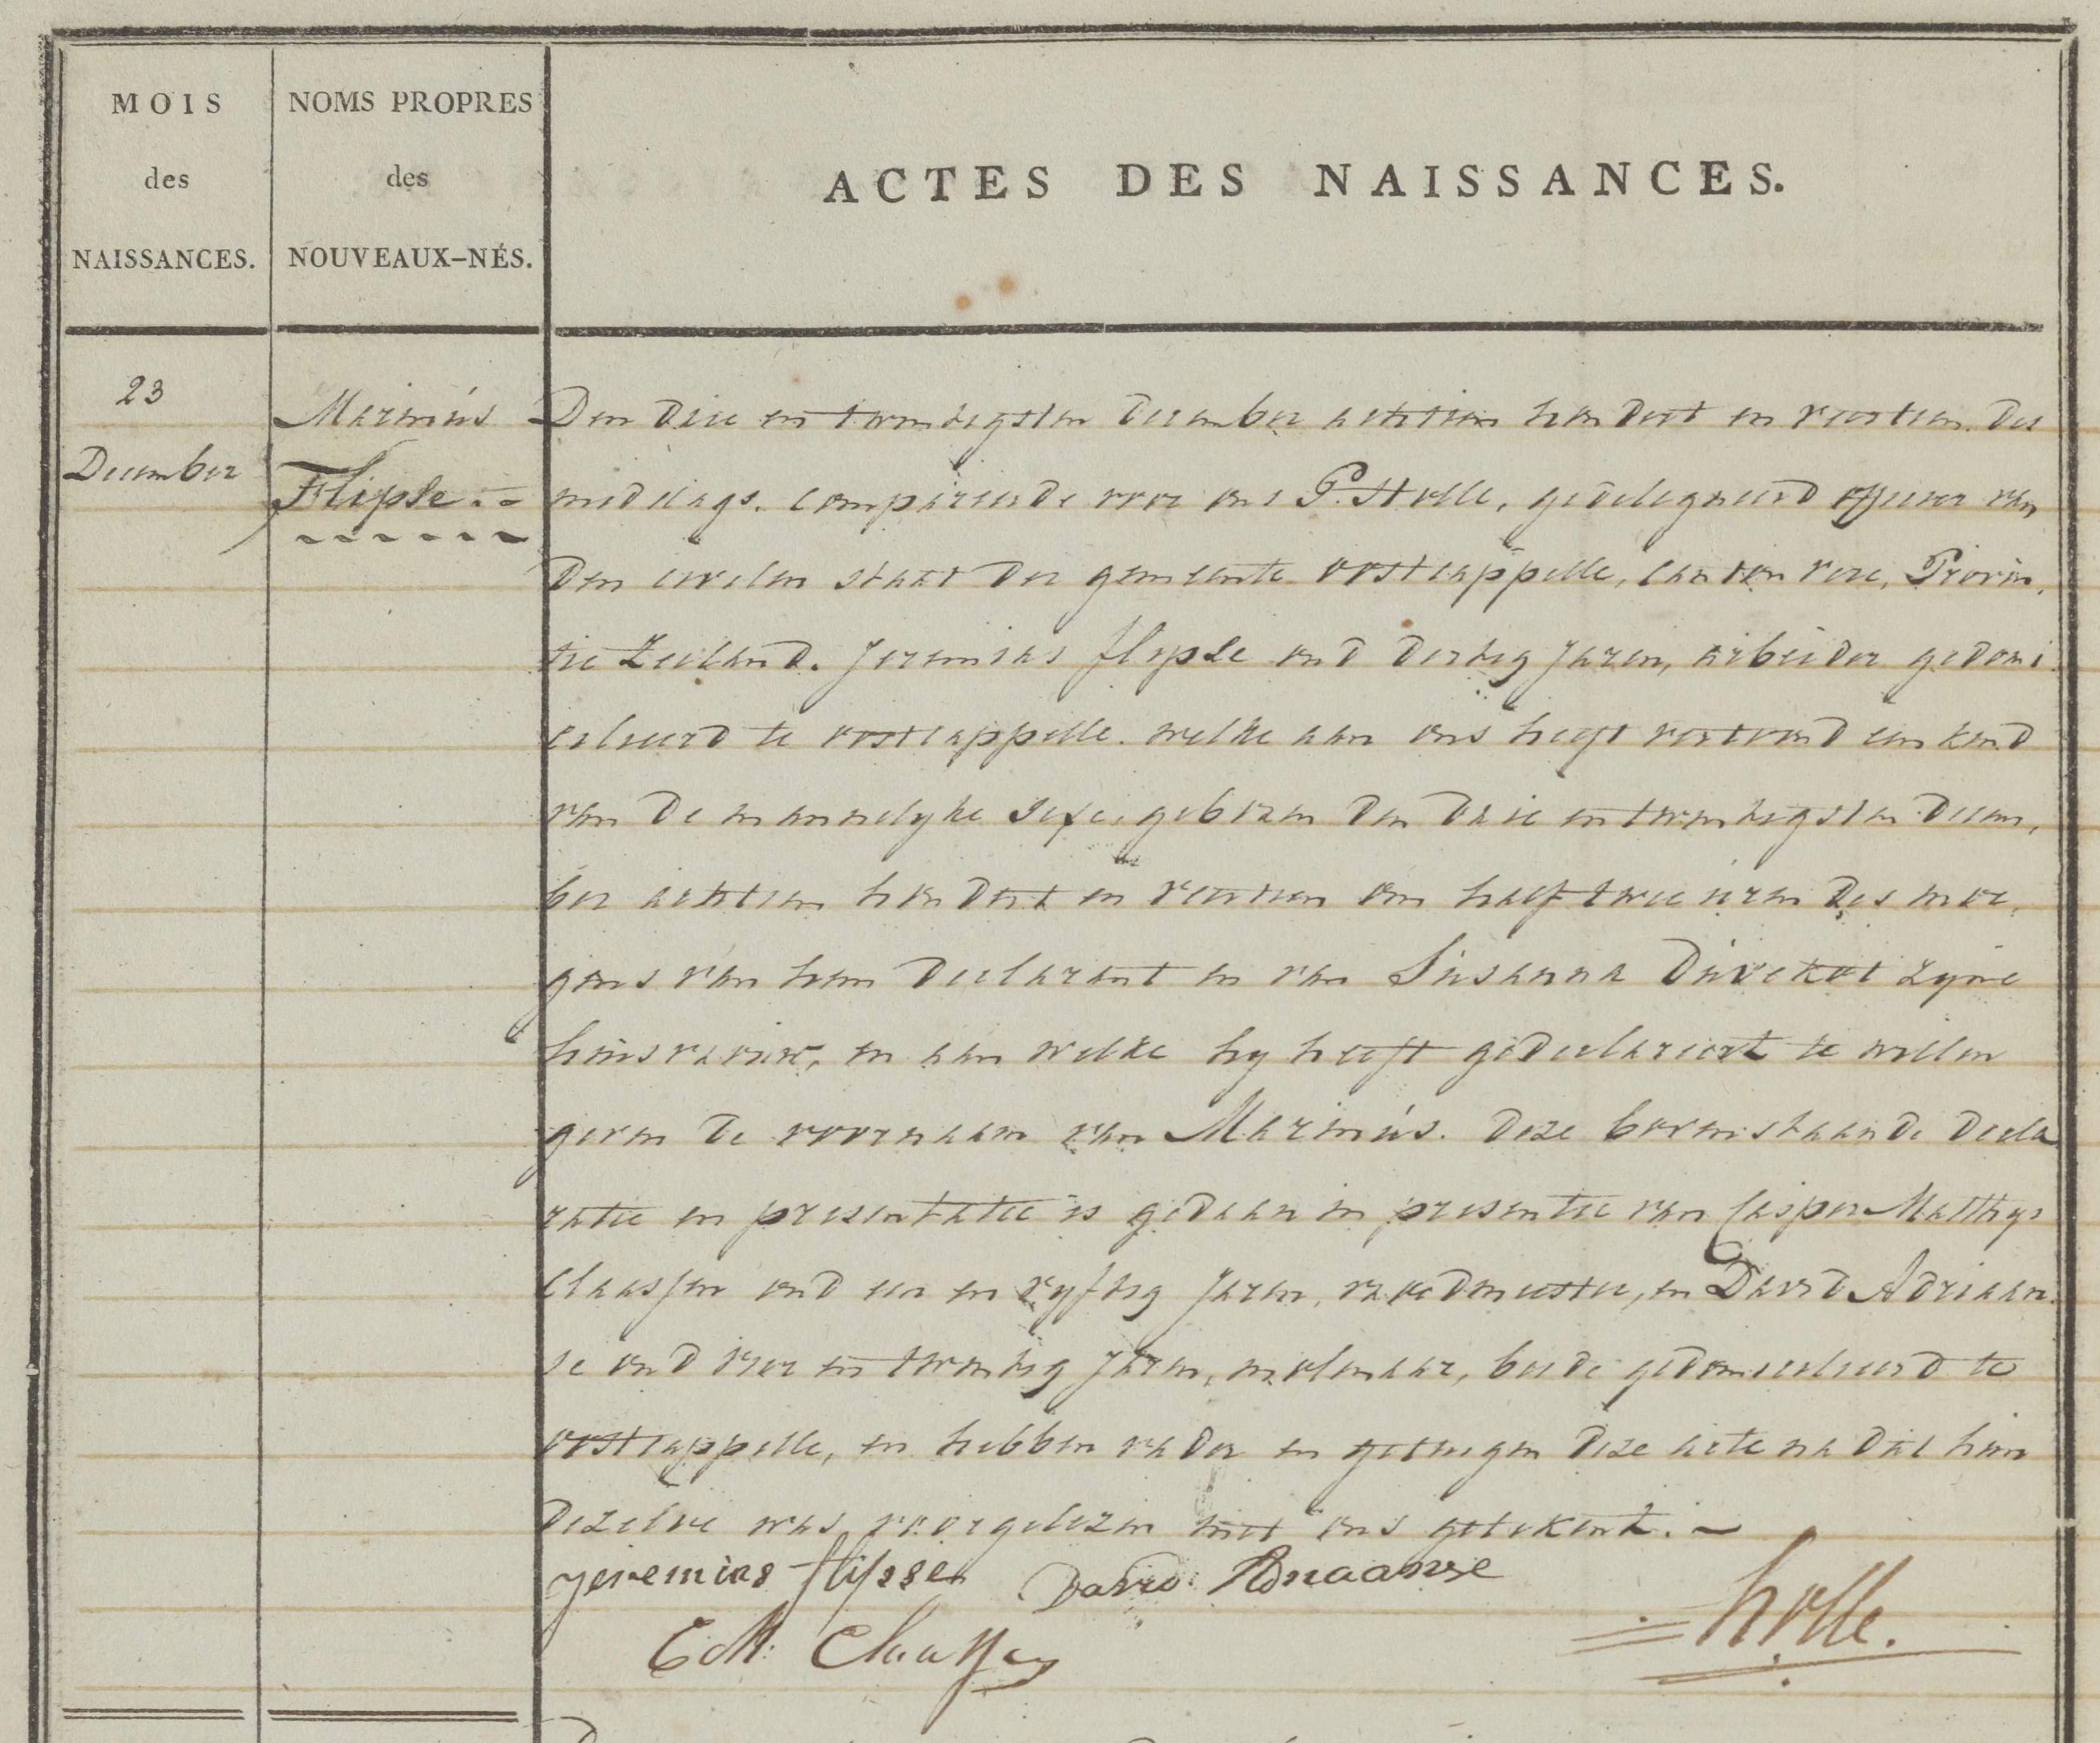 MOIS
des
NAISSANCES.
NOMS PROPRES
des
NOUVEAUX-NÉS.
ACTES DES NAISSANCES.
23
December
Marinús
Flipse
Den drie en twintigsten december achttien hondert en veertien. des
middags. compareerde voor ons P. Holle, gedelegueerd officier van
den civielen staat der gemeente oostcappelle, canton vere, Provin,
tie Zeeland. Jeremias flipse oud dertig Jaren, arbeider gedomi
cilieerd te oostcappelle. welke aan ons heeft vertoond een kind
van de mannelyke sexe, geboren den drie en twintigsten decem,
ber achttien hondert en veertien om half twee úren des mor,
gens van hem declarant en van Súsanna Dúvekot zyne
húisvrouw, en aan welke hy heeft gedeclareert te willen
geven de voornaam van Marinús. deze bovenstaande decla
ratie en presentatie is gedaan in presentie van Casper Matthys
Claassen oud een en vyftig Jaren, vroedmeester, en David Adriaan
se oud vier en twintig Jaren, molenaar, beide gedomicilieerd te
oostcappelle, en hebben vader en getuigen deze acte na dat hún
dezelve was voorgelezen met ons getekent.
Jeremias flipse David Adriaanse
C M: Claassen
Holle.